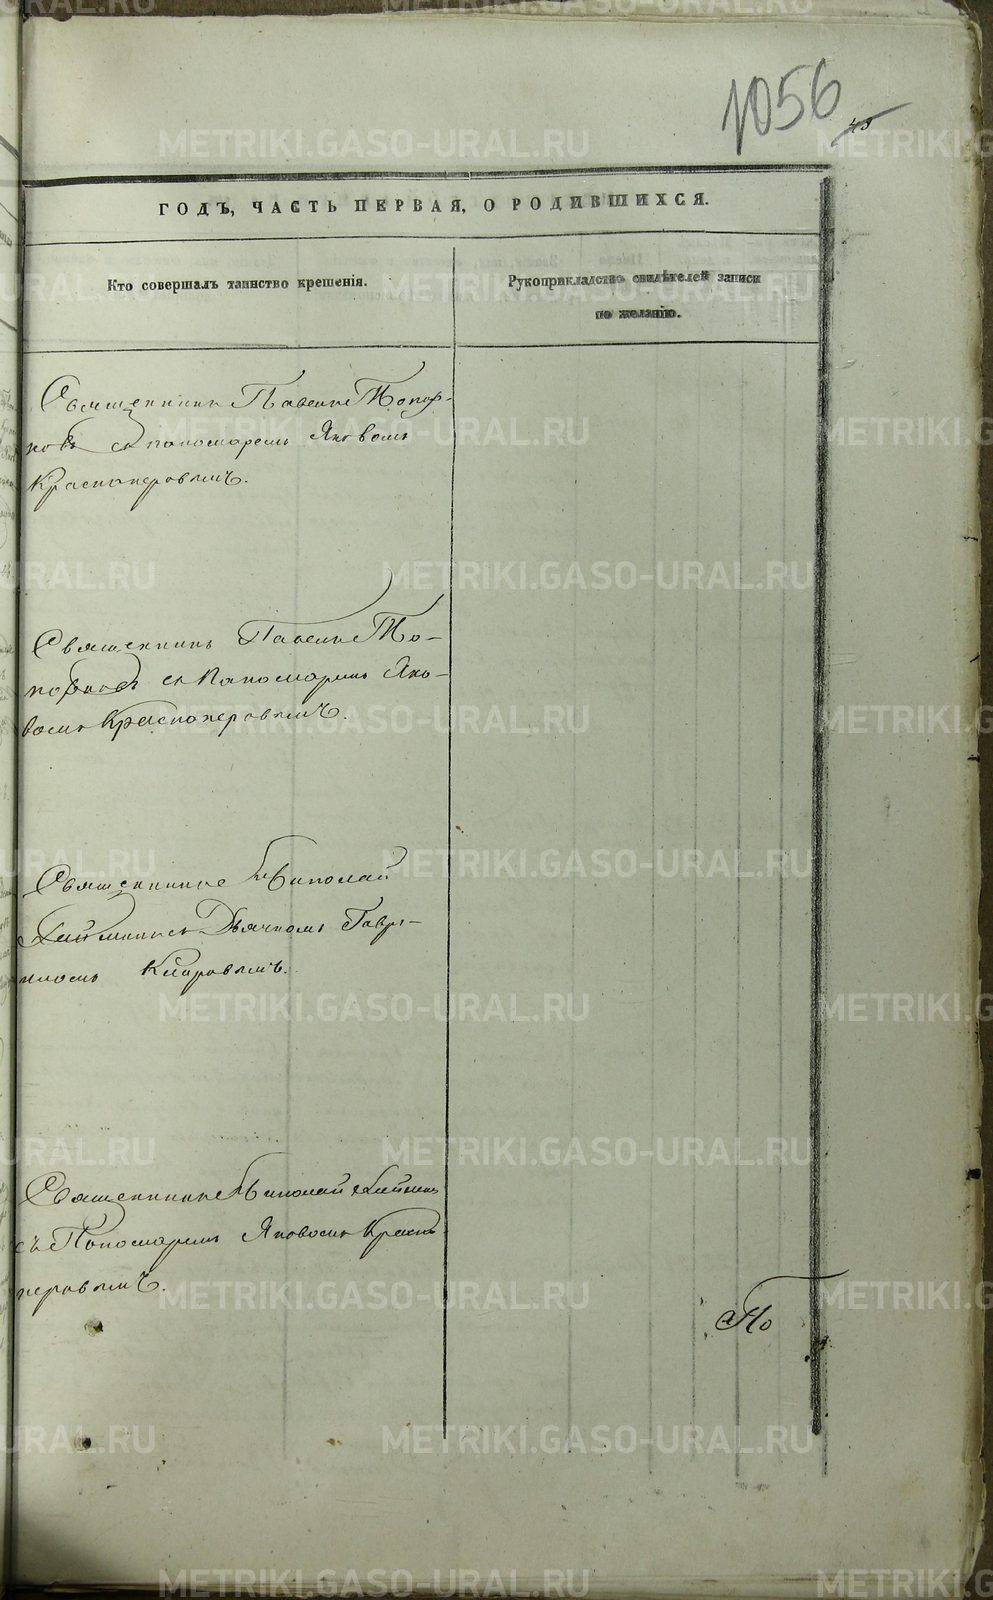 1056
43
ГОДЪ, ЧАСТЬ ПЕРВАЯ, О РОДИВШИХСЯ.
Кто совершалъ таинство крещенія.
Рукоприкладство свидѣтелей записи
по желанію.
Священникъ Павелъ Топор-
ковъ съ пономаремъ Яковомъ
Красноперовымъ.
Священникъ Павелъ То-
порковъ съ Пономаремъ Яко-
вомъ Красноперовымъ.
Священникъ Николай
съ Дьячкомъ Гаври-
иломъ Кипровымъ.
Священникъ Николай
съ Пономаремъ Яковомъ Красно
перовымъ.
По
METRIKI.GASO-URAL.RU